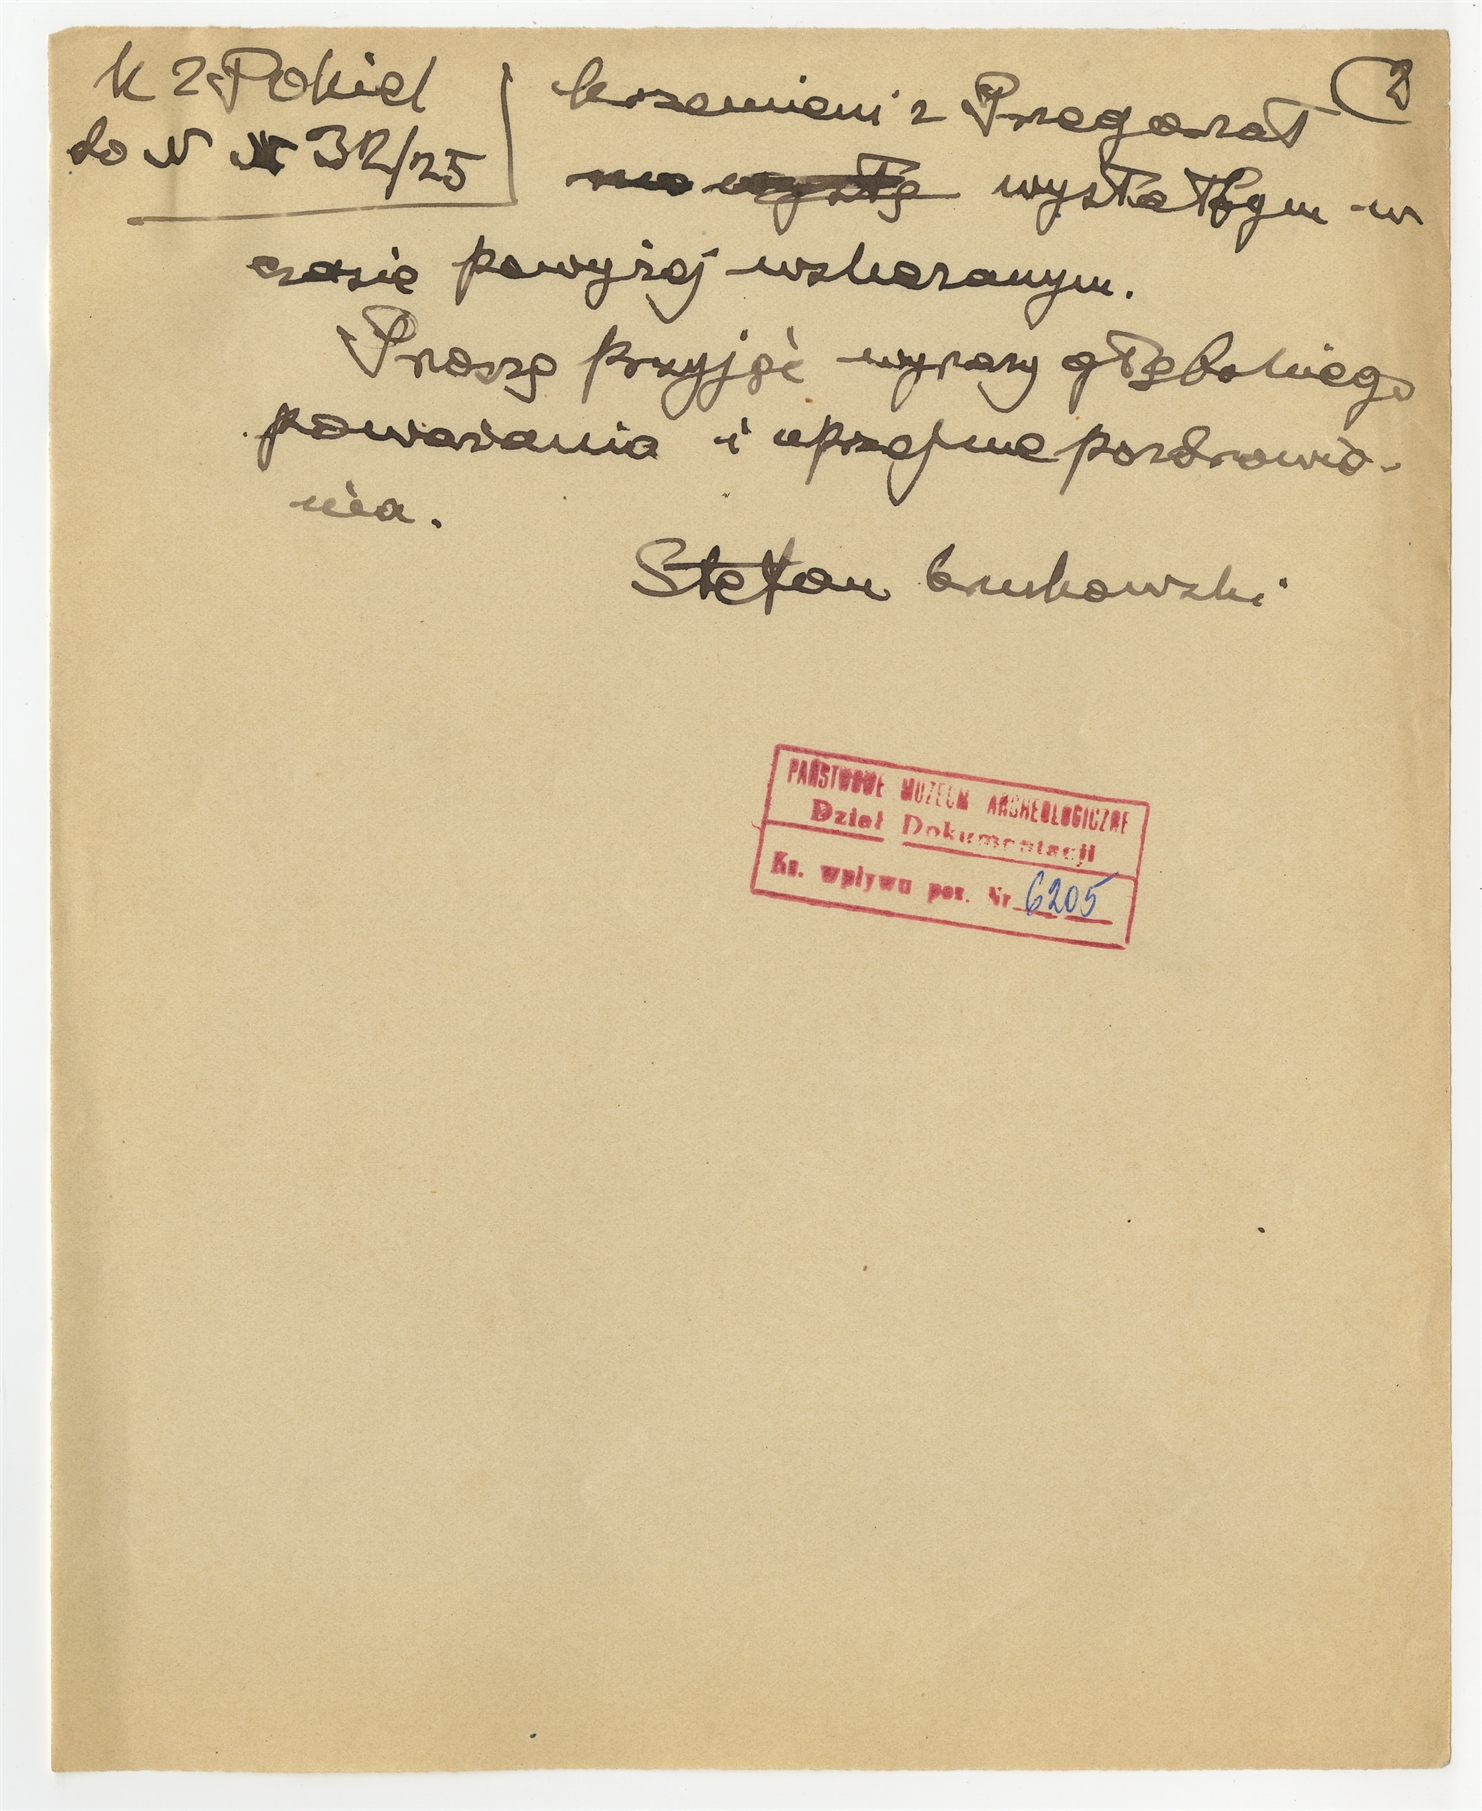 K 2 Pokiel
do N 32/25
krzemieni z Przegorzał
wysłałbym w
czasie powyżej wskazanym.
Proszę przyjąć wyrazy głębokiego
poważania i uprzejme pozdrowie-
nia.
Stefan Krukowski
2
PAŃSTWOWE MUZEUM ARCHEOLOGICZNE
Dział Dokumentacji
Ks. wpływu poz. Nr 6205